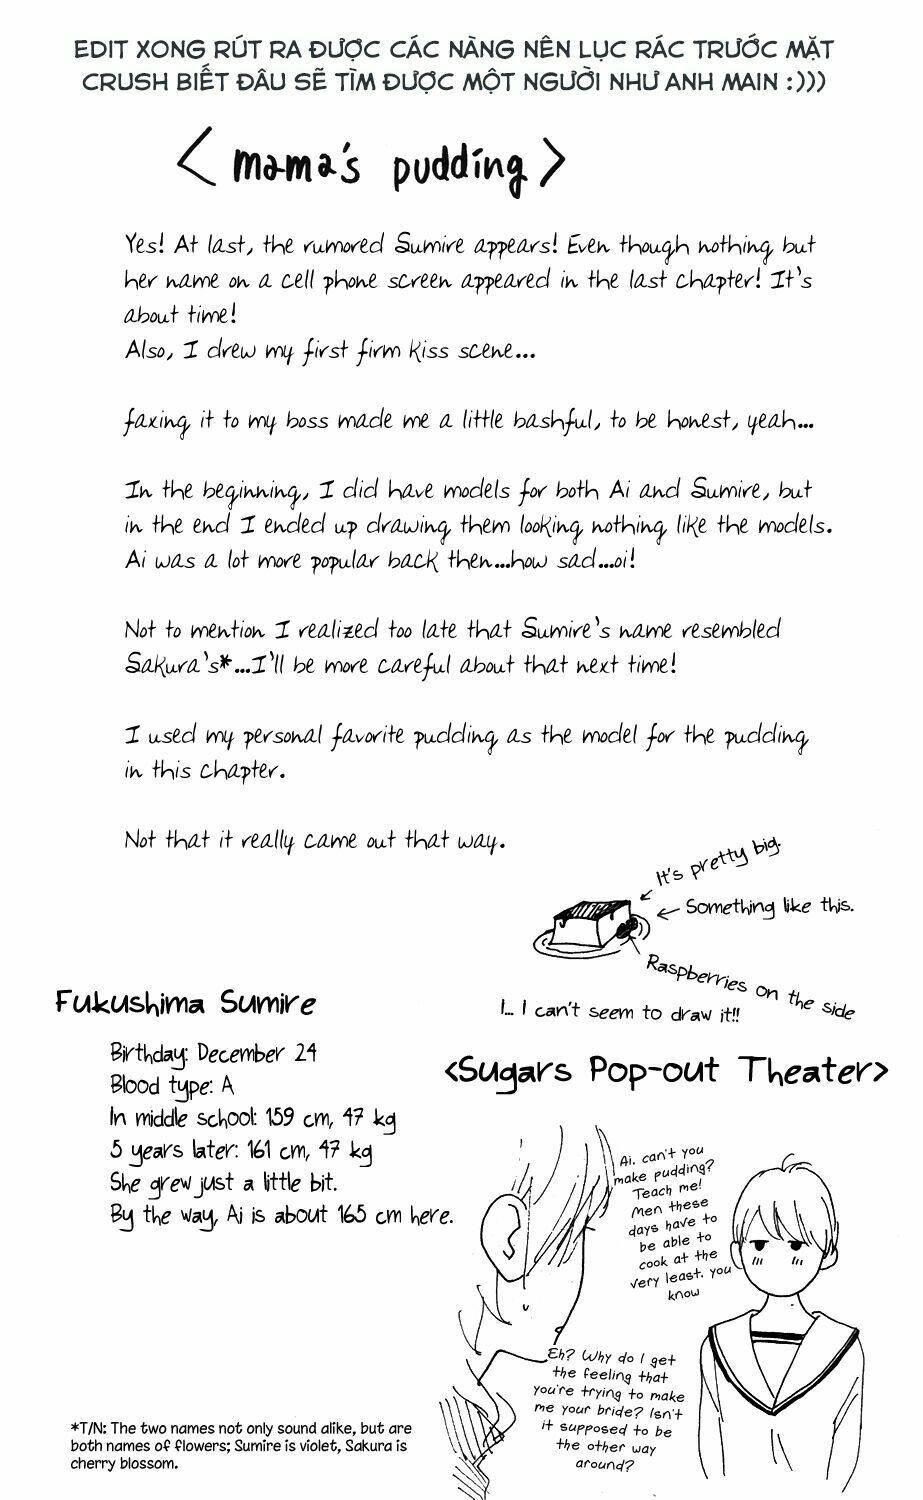 EDIT XONG RÚT RA ĐƯỢC CÁC NÀNG NÊN LỤC RÁC TRƯỚC MẶT
CRUSH BIẾT ĐÂU SẼ TÌM ĐƯỢC MỘT NGƯỜI NHƯ ANH MAIN :)))
<mama's pudding>
Yes! At last, the rumored Sumire appears! Even though nothing but
her name on a cell phone screen appeared in the last chapter! It's
about time!
Also, I drew my first firm kiss scene...
faxing it to my boss made me a little bashful, to be honest, yeah...
In the beginning, I did have models for both Ai and Sumire, but
in the end I ended up drawing them looking nothing like the models.
Ai was a lot more popular back then...how sad...oi!
Not to mention I realized too late that Sumire's name resembled
Sakura's*...I'll be more careful about that next time!
I used my personal favorite pudding as the model for the pudding
in this chapter.
Not that it really came out that way.
It's pretty big.
Something like this.
Raspberries on the side
I... I can't seem to draw it!!
Fukushima Sumire
Birthday: December 24
Blood type: A
In middle school: 159 cm, 47 kg
5 years later: 161 cm, 47 kg
She grew just a little bit.
By the way, Ai is about 165 cm here.
<Sugars Pop-out Theater>
Ai. can't you
make pudding?
Teach me!
Men these
days have to
be able to
cook at the
very least. you
know
Eh? Why do I get
the feeling that
you're trying to make
me your bride? Isn't
it supposed to
be the other way
around?
*T/N: The two names not only sound alike, but are
both names of flowers; Sumire is violet, Sakura is
cherry blossom.